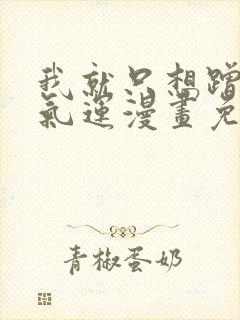 我就只想蹭
氣運漫畫免
青椒蛋奶